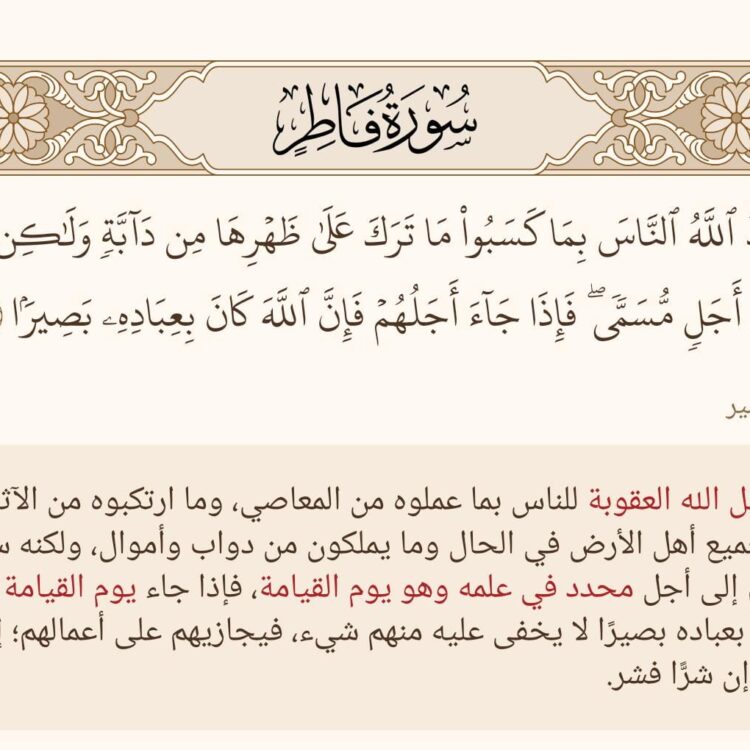 سُورَةُ فَاطِرٍ
ٱللَّهُ ٱلنَّاسَ بِمَا كَسَبُوا۟ مَا تَرَكَ عَلَىٰ ظَهْرِهَا مِن دَآبَّةٍ وَلَـٰكِن
أَجَلٍ مُّسَمًّى ۖ فَإِذَا جَآءَ أَجَلُهُمْ فَإِنَّ ٱللَّهَ كَانَ بِعِبَادِهِۦ بَصِيرًۢا
الله العقوبة للناس بما عملوه من المعاصي، وما ارتكبوه من
أهل الأرض في الحال وما يملكون من دواب وأموال، ولكنه
إلى أجل محدد في علمه وهو يوم القيامة، فإذا جاء يوم القيامة
بعباده بصيرًا لا يخفى عليه منهم شيء، فيجازيهم على أعمالهم؛
إن شرًّا فشر.